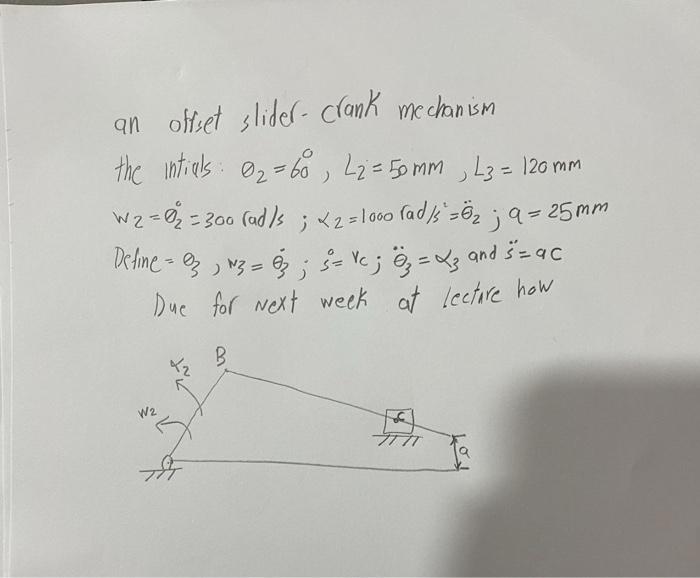 an offset slider-crank mechanism
the intials: θ2 = 60°, L2 = 50 mm, L3 = 120 mm
w2 = θ̇2 = 300 rad/s ; α2 = 1000 rad/s² = θ̈2 ; a = 25 mm
Define = θ3, w3 = θ̇3 ; ṡ = Vc ; θ̈3 = α3 and s̈ = ac
Due for next week at lecture how
α2
B
w2
c
a